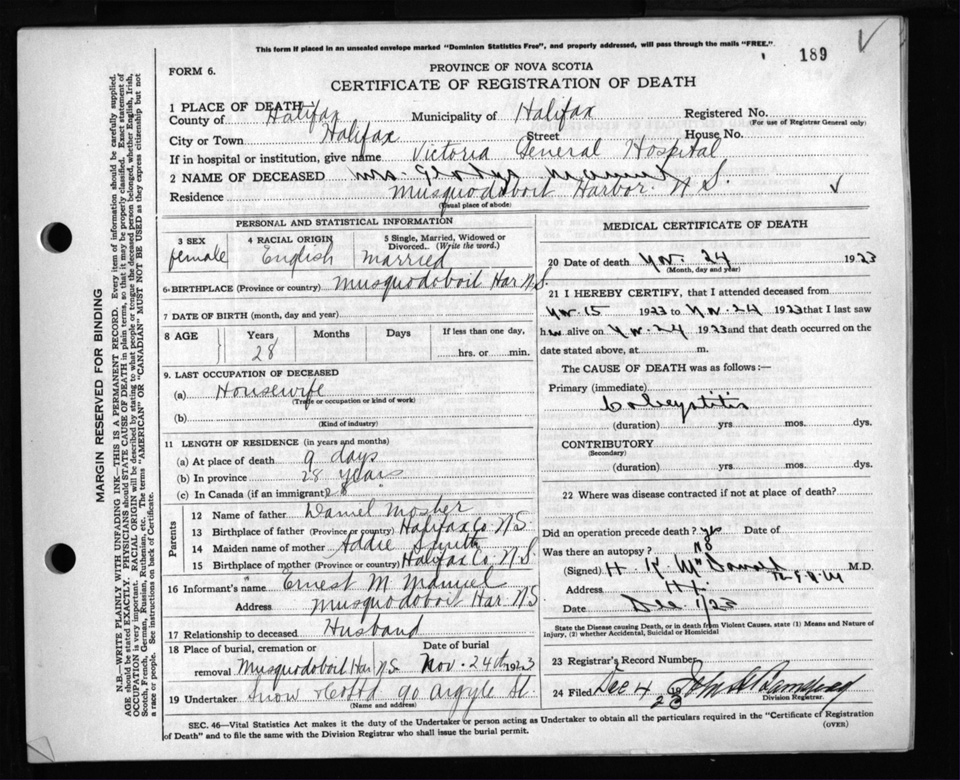 This form if placed in an unsealed envelope marked "Dominion Statistics Free", and properly addressed, will pass through the mails "FREE."
189
FORM 6.
PROVINCE OF NOVA SCOTIA
CERTIFICATE OF REGISTRATION OF DEATH
1 PLACE OF DEATH—
County of Halifax Municipality of Halifax Registered No.
(For use of Registrar General only)
City or Town Halifax Street House No.
If in hospital or institution, give name Victoria General Hospital
2 NAME OF DECEASED Mrs. Gladys Manuel
Residence Musquodoboit Harbor. N S.
(Usual place of abode)
MARGIN RESERVED FOR BINDING
N.B.—WRITE PLAINLY WITH UNFADING INK—THIS IS A PERMANENT RECORD. Every item of information should be carefully supplied. AGE should be stated EXACTLY. PHYSICIANS should STATE CAUSE OF DEATH in plain terms, so that it may be properly classified. Exact statement of OCCUPATION is very important. RACIAL ORIGIN will be described by stating to what people or tongue the deceased person belonged, whether English, Irish, Scotch, French, German, Russian, Ruthenian, etc. The terms "AMERICAN" OR "CANADIAN" MUST NOT BE USED as they express citizenship but not a race or people. See instructions on back of Certificate.
PERSONAL AND STATISTICAL INFORMATION
3 SEX
female
4 RACIAL ORIGIN
English
5 Single, Married, Widowed or Divorced. (Write the word.)
Married
6 BIRTHPLACE (Province or country) Musquodoboit Har N.S.
7 DATE OF BIRTH (month, day and year)
8 AGE Years Months Days If less than one day,
28 hrs. or min.
9. LAST OCCUPATION OF DECEASED
(a) Housewife
(Trade or occupation or kind of work)
(b)
(Kind of industry)
11 LENGTH OF RESIDENCE (in years and months)
(a) At place of death 9 days
(b) In province 28 years
(c) In Canada (if an immigrant) 28
Parents
12 Name of father Daniel Mosher
13 Birthplace of father (Province or country) Halifax Co. N S
14 Maiden name of mother Addie Smith
15 Birthplace of mother (Province or country) Halifax Co, N S.
16 Informant's name Ernest M Manuel
Address Musquodoboit Har. N S
17 Relationship to deceased Husband
18 Place of burial, cremation or removal Musquodoboit Har N S
Date of burial Nov. 24th 1923
19 Undertaker Snow & Co Ltd 90 Argyle St.
(Name and address)
MEDICAL CERTIFICATE OF DEATH
20 Date of death Nov. 24 1923
(Month, day and year)
21 I HEREBY CERTIFY, that I attended deceased from
Nov. 15 1923 to Nov. 24 1923 that I last saw
her alive on Nov. 24 1923 and that death occurred on the
date stated above, at m.
The CAUSE OF DEATH was as follows:—
Primary (immediate)
(duration) yrs. mos. dys.
CONTRIBUTORY
(Secondary)
(duration) yrs. mos. dys.
22 Where was disease contracted if not at place of death?
Did an operation precede death? yes Date of
Was there an autopsy? No
(Signed) H. K. McDonald M.D.
Address Hx.
Date Dec. 1/23
State the Disease causing Death, or in death from Violent Causes, state (1) Means and Nature of Injury, (2) whether Accidental, Suicidal or Homicidal
23 Registrar's Record Number
24 Filed Dec 4 1923
Division Registrar.
SEC. 46—Vital Statistics Act makes it the duty of the Undertaker or person acting as Undertaker to obtain all the particulars required in the "Certificate of Registration
of Death" and to file the same with the Division Registrar who shall issue the burial permit.
(OVER)